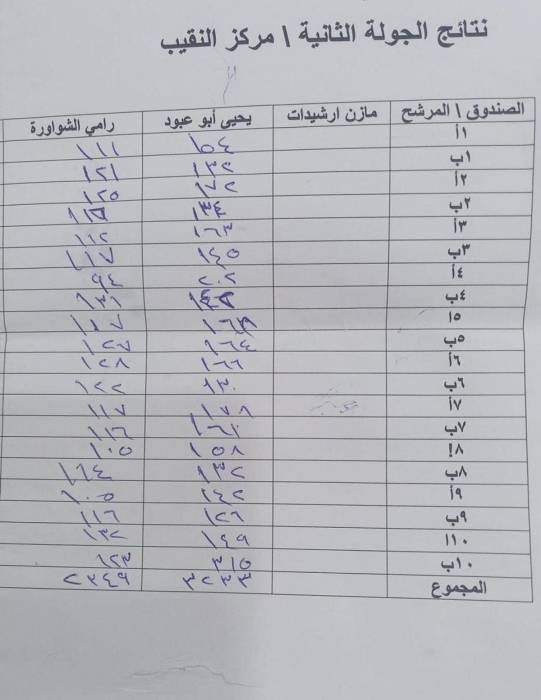 نتائج الجولة الثانية \ مركز النقيب
الصندوق \ المرشح مازن ارشيدات يحيى أبو عبود رامي الشواورة
١أ ١٥٤ ١١١
١ب ١٣٢ ١٢١
٢أ ١٧٢ ١٢٥
٢ب ١٣٤
٣أ ١٦٣ ١١٢
٣ب ١٤٥ ١١٧
٤أ ٢٠٢ ٩٤
٤ب ١٣١
٥أ
٥ب ١٦٤ ١٢٧
٦أ ١٦٦ ١٢٨
٦ب ١٣٠ ١٢٢
٧أ ١٧٨ ١١٧
٧ب ١٦١ ١١٦
٨أ ١٥٨ ١٠٥
٨ب ١٣٢ ١٦٤
٩أ ١٤٢ ١٠٥
٩ب ١٢٦ ١١٦
١٠أ ١٤٩ ١٣٢
١٠ب ٣١٥ ١٢٣
المجموع ٣٢٣٣ ٢٣٤٩